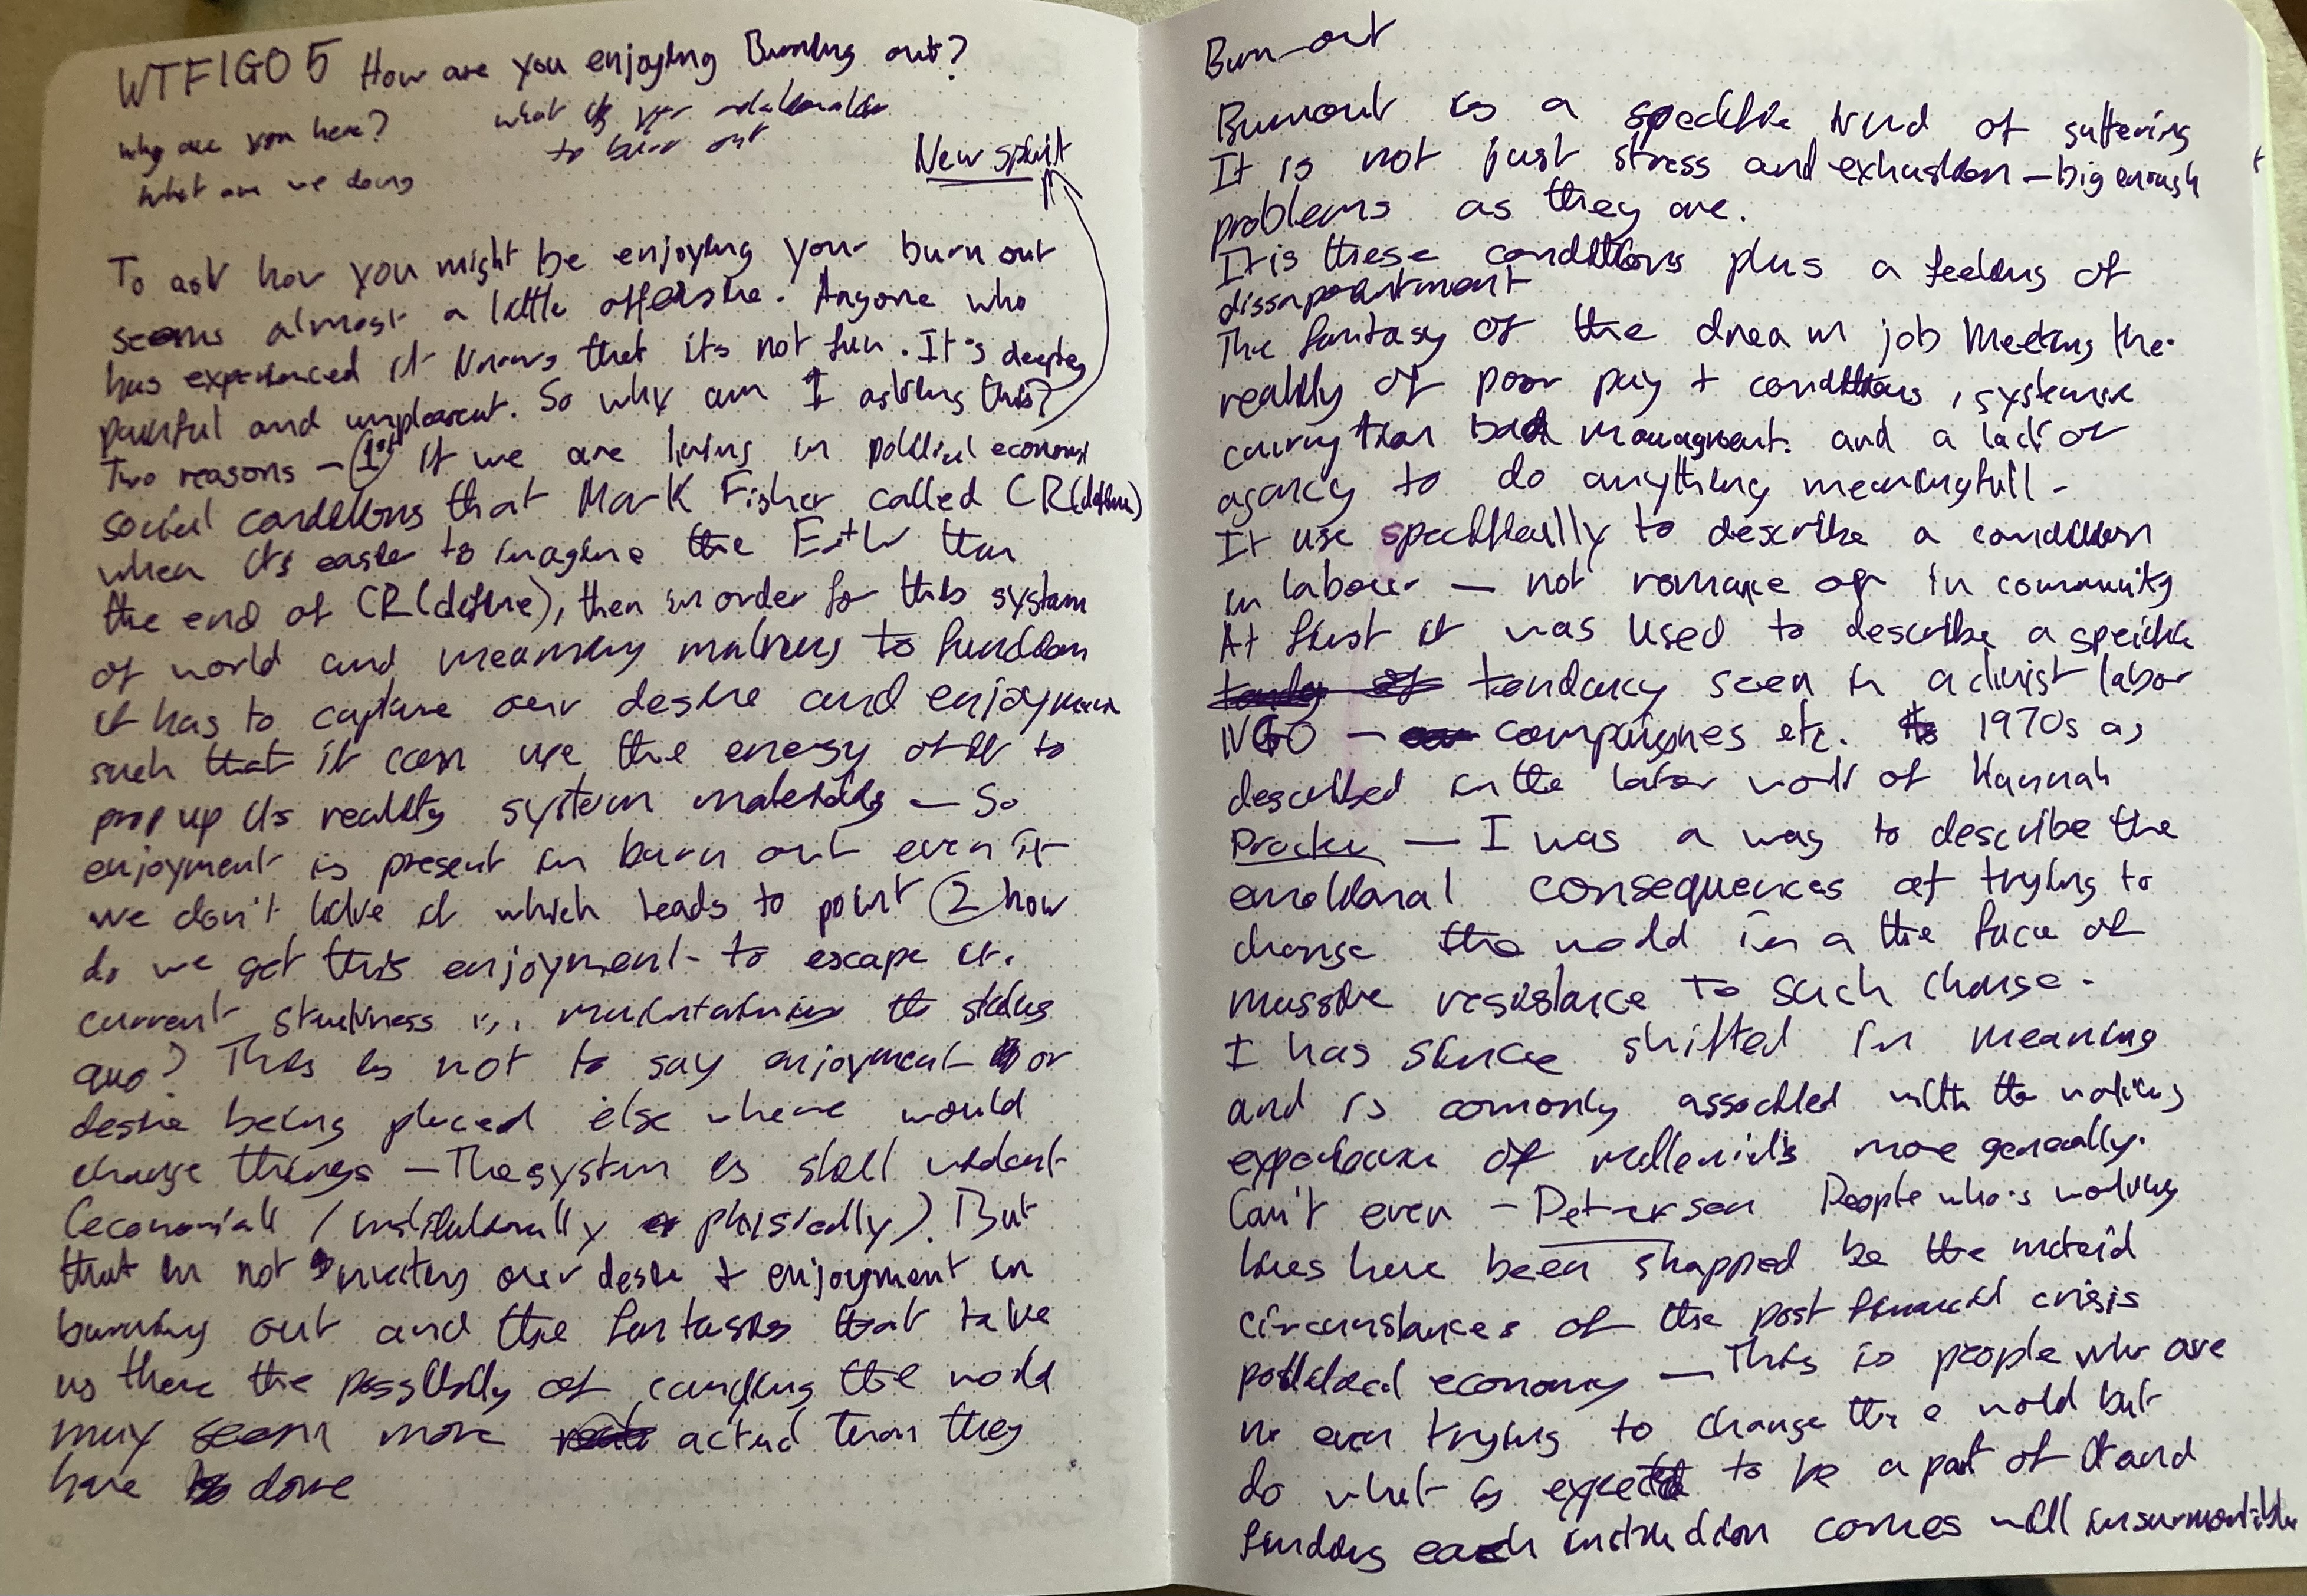 WTFIGO 5 How are you enjoying Burning out?
why are you here?
what is your
to burn out
what are we doing
New spirit
To ask how you might be enjoying your burn out
seems almost a little offensive. Anyone who
has experienced it knows that its not fun. It's deeply
painful and unpleasent. So why am I asking this?
Two reasons – 1st if we are living in political economi
social conditions that Mark Fisher called CR (define)
when its easier to imagine the EotW than
the end of CR (define), then in order for this system
of world and meaning making to function
it has to capture our desire and enjoyment
such that it can use the energy of it to
prop up its reality system materially — So
enjoyment is present in burn out even if
we don't like it which leads to point 2 how
do we get this enjoyment to escape it.
current stuckness maintaining the status
quo? This is not to say enjoyment or
desire being placed else where would
change things – The system is still violent
(economicall / institutionally physically). But
that in not our desire + enjoyment in
burning out and the fantasies that take
us there the possibility of the world
may seem more actual than they
have done
Burn-out
Burnout is a specific kind of suffering
It is not just stress and exhustion – big enough
problems as they are.
It is these conditions plus a feeling of
dissapointment
The fantasy of the dream job meeting the
reality of poor pay + conditions, systemic
bad managment. and a lack of
agency to do anything meaningfull –
It use specifically to describe a condition
in labour — not romance or in community
At first it was used to describe a speicific
tendancy seen in activist labor
NGO – etc. 1970s as
described in the later work of Hannah
Proctor — I was a way to describe the
emotional consequences of trying to
change the world in a the face of
massive resistance to such change.
I has since shifted in meaning
and is comonly with the working
experience of millenials more generally.
Can't even – Peterson People who's working
lives have been shapped be the material
circumstances of the post financial crisis
political economy — This is people who are
no even trying to change the world but
do what is expected to be a part of it and
finding each comes with insurmontible